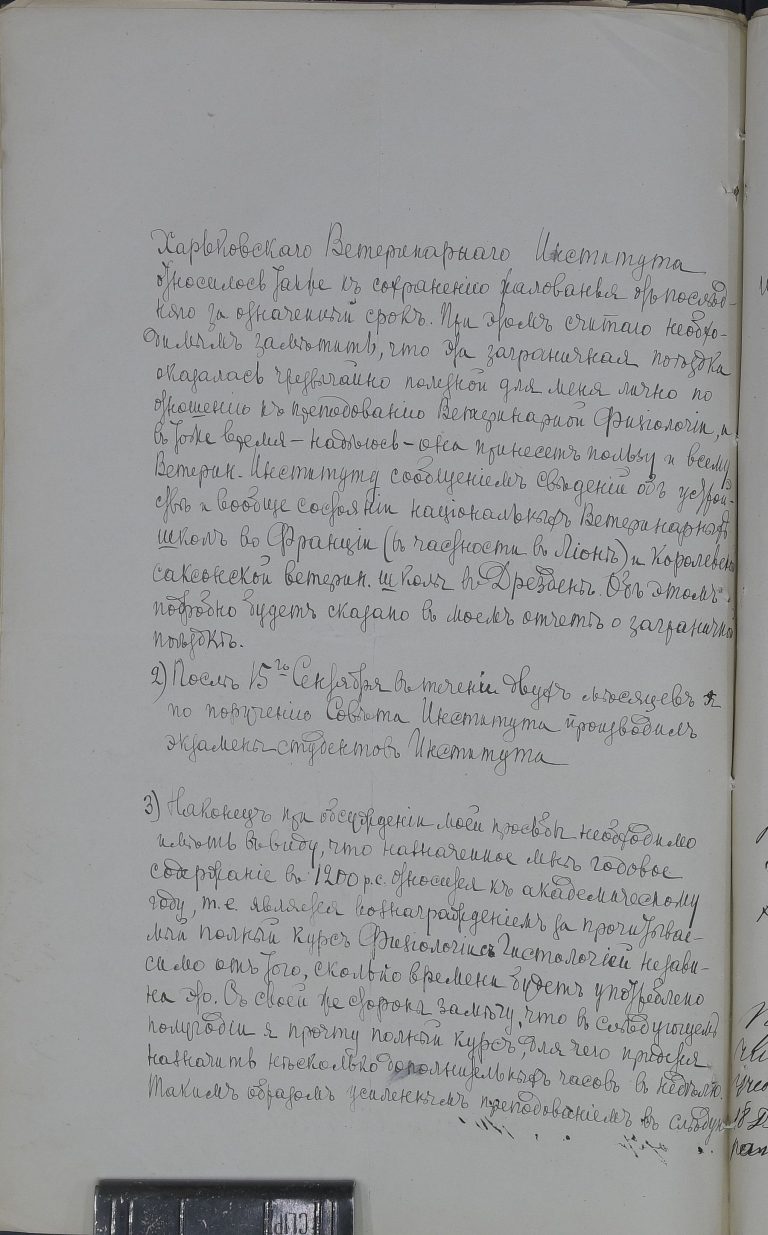 Харьковскаго Ветеринарнаго Института
относилось также къ сохраненію жалованья послѣд-
няго за означенный срокъ. При этомъ считаю необхо-
димымъ замѣтить, что эта заграничная поѣздка
оказалась чрезвычайно полезной для меня лично по
отношенію къ преподаванію Ветеринарной Физіологіи, а
въ тоже время – надѣюсь – она принесетъ пользу и всему
Ветерин. Институту сообщеніемъ свѣденій объ устрой-
ствѣ и вообще состояніи національныхъ Ветеринарныхъ
школъ во Франціи (въ частности въ Ліонѣ) и Королевско
саксонской ветерин. школы въ Дрезденѣ. Объ этомъ
подробно будетъ сказано въ моемъ отчетѣ о заграничной
поѣздкѣ.
2) Послѣ 15го Сентября въ теченіи двухъ мѣсяцевъ я
по порученію Совѣта Института производилъ
экзамены студентовъ Института
3) Наконецъ при обсужденіи моей просьбы необходимо
имѣть въ виду, что назначенное мнѣ годовое
содержаніе въ 1200 р.с. относится къ академическому
году, т.е. является вознагражденіемъ за прочитывае-
мый полный курсъ Физіологіи съ Гистологіей незави-
симо отъ того, сколько времени будетъ употреблено
на это. Съ своей же стороны замѣчу, что въ слѣдующемъ
полугодіи я прочту полный курсъ, для чего придется
назначить нѣсколько дополнительныхъ часовъ въ недѣлю.
Такимъ образомъ усиленнымъ преподаваніемъ въ слѣдую